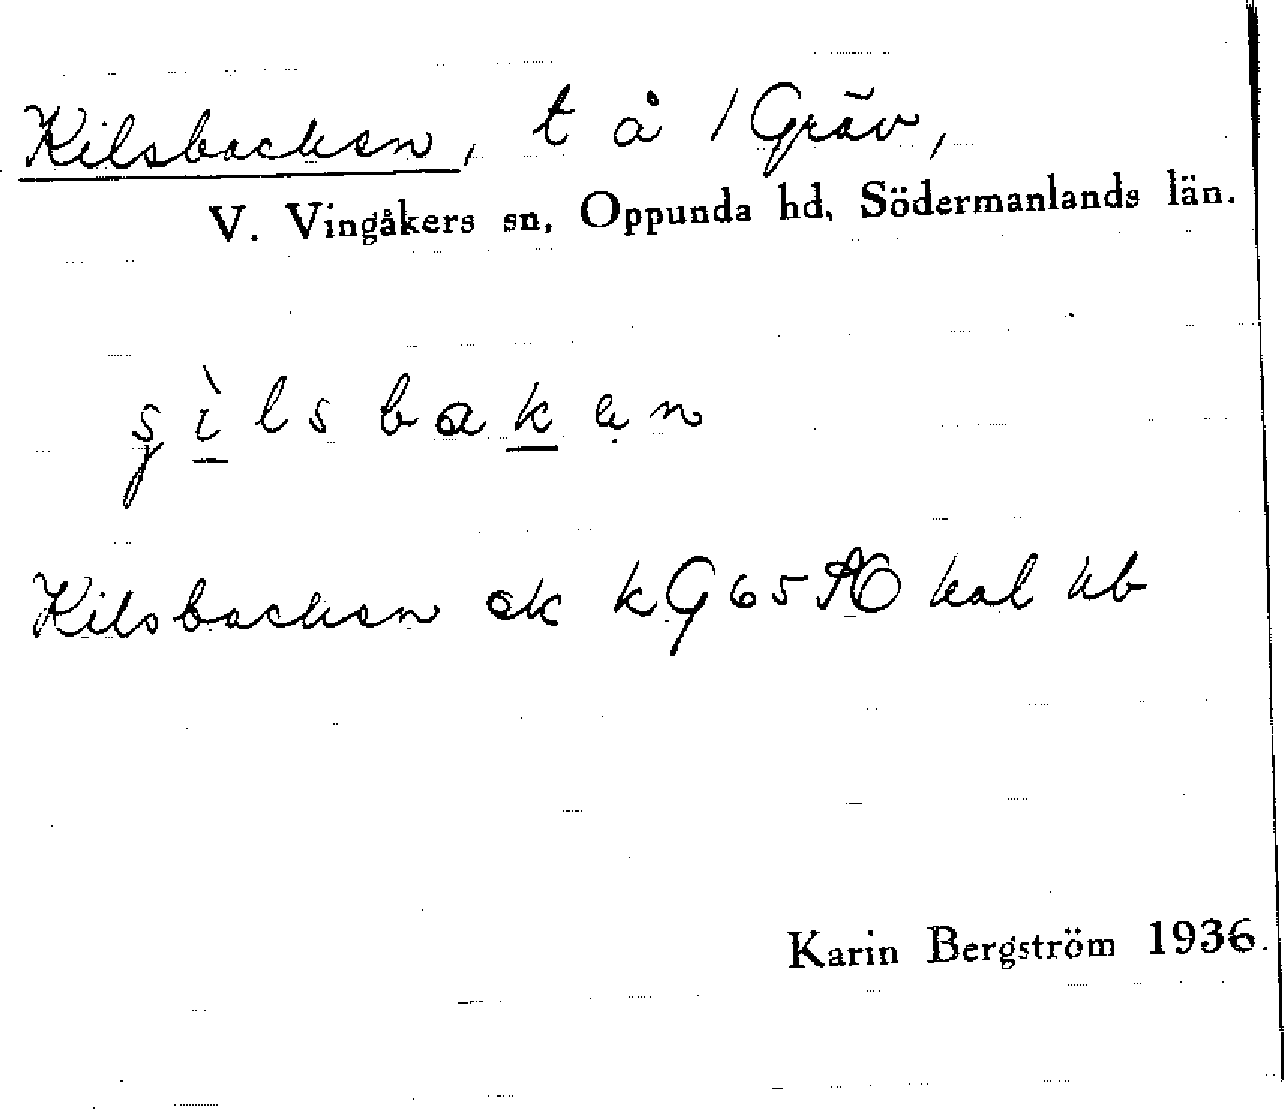 Kilsbacken, t å 1 Gräv,
V. Vingåkers sn, Oppunda hd, Södermanlands län.
kilsbacken
Kilsbacken ek kG65 ÄO kal kb
Karin Bergström 1936.